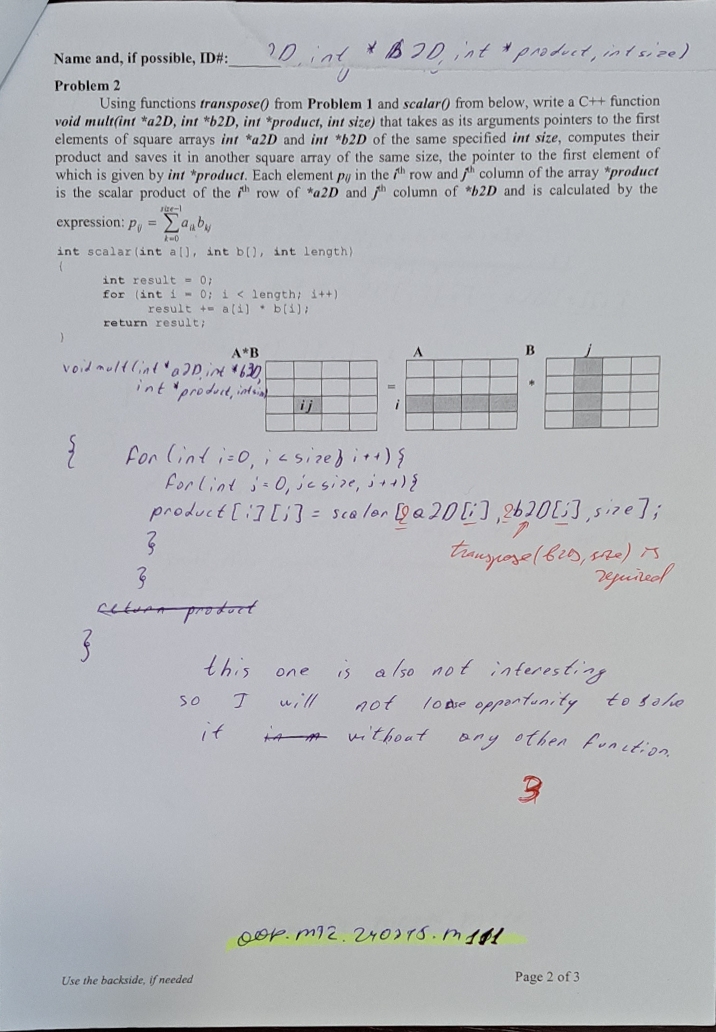 Name and, if possible, ID#: 2D, int * B2D, int * product, int size)
Problem 2
Using functions transpose() from Problem 1 and scalar() from below, write a C++ function
void mult(int *a2D, int *b2D, int *product, int size) that takes as its arguments pointers to the first
elements of square arrays int *a2D and int *b2D of the same specified int size, computes their
product and saves it in another square array of the same size, the pointer to the first element of
which is given by int *product. Each element pij in the ith row and jth column of the array *product
is the scalar product of the ith row of *a2D and jth column of *b2D and is calculated by the
expression: pij = size-1 ∑ k=0 aik bkj
int scalar(int a[], int b[], int length)
{
int result = 0;
for (int i = 0; i < length; i++)
result += a[i] * b[i];
return result;
}
A*B A B j
void mult(int *a2D, int *b2D,
int *product, int size)
ij = i *
{ for (int i=0, i<size; i++) {
for (int j=0, j<size, j++) {
product[i][j] = scalar[a2D[i], b2D[j], size];
}
transpose(b2D, size) is
required
}
return product
}
this one is also not interesting
so I will not loose opportunity to solve
it without any other function.
3
OOP.MT2.240215.M111
Use the backside, if needed Page 2 of 3